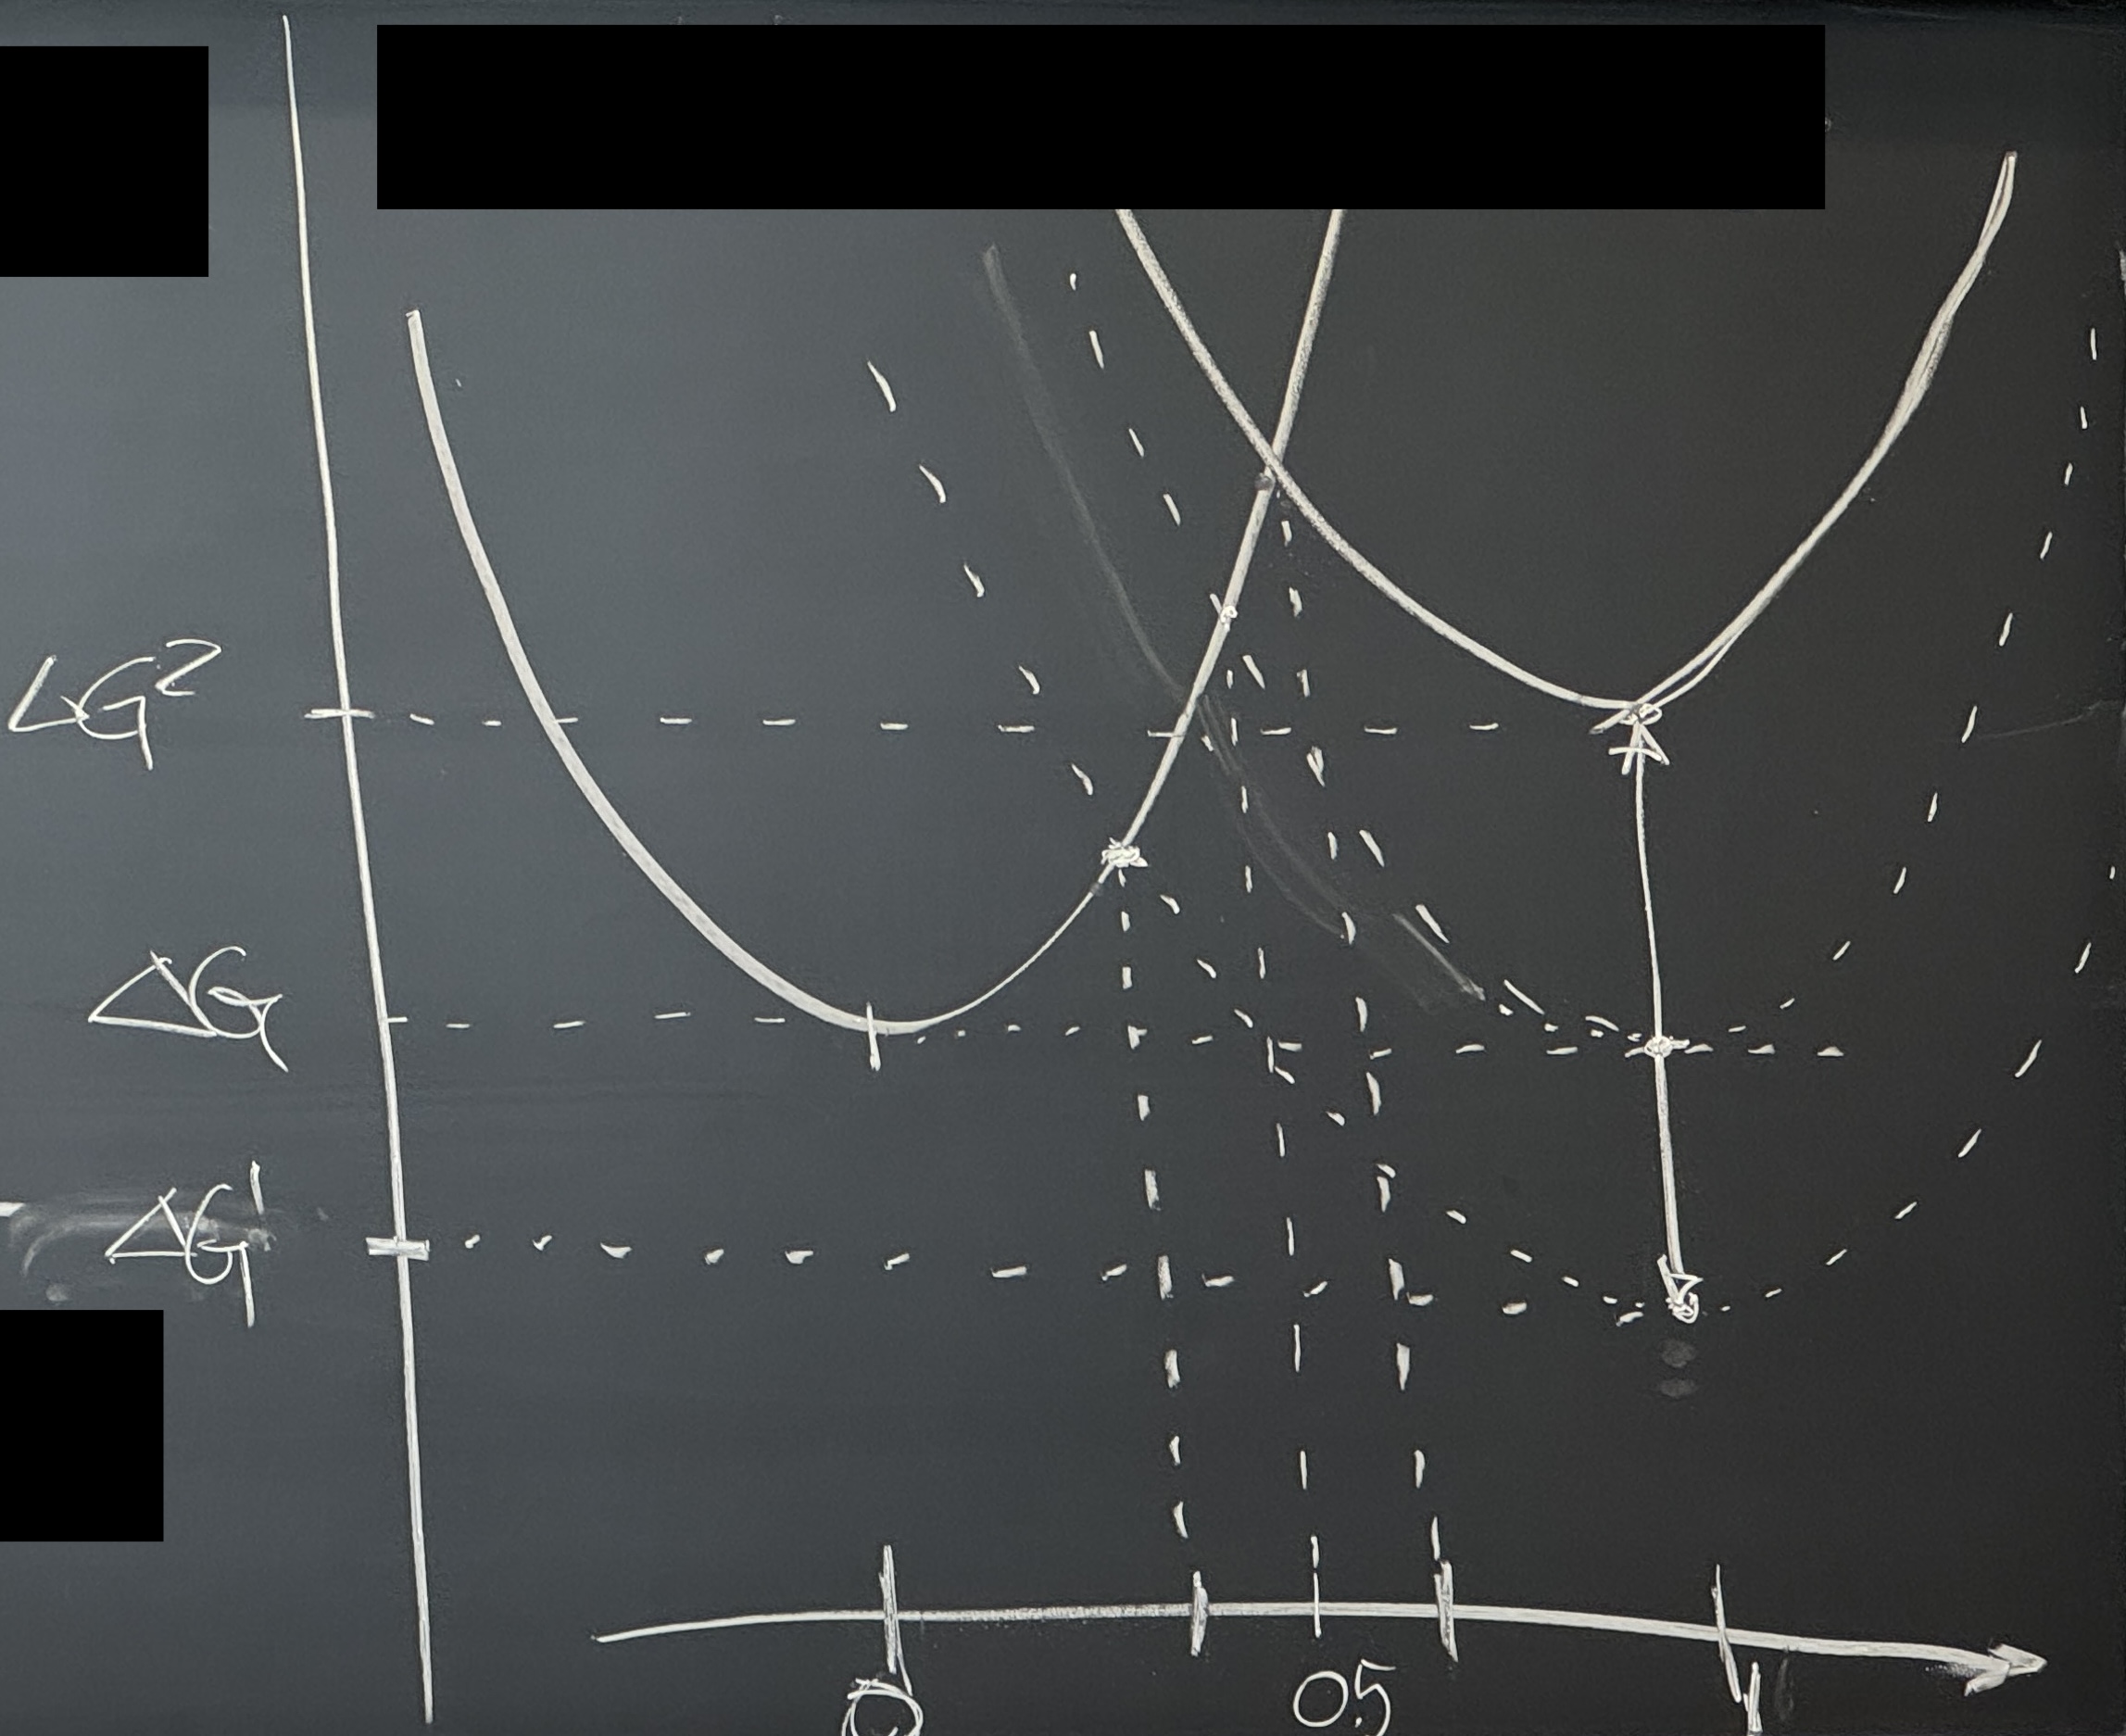 ΔG²
ΔG
ΔG¹
0 0.5 1